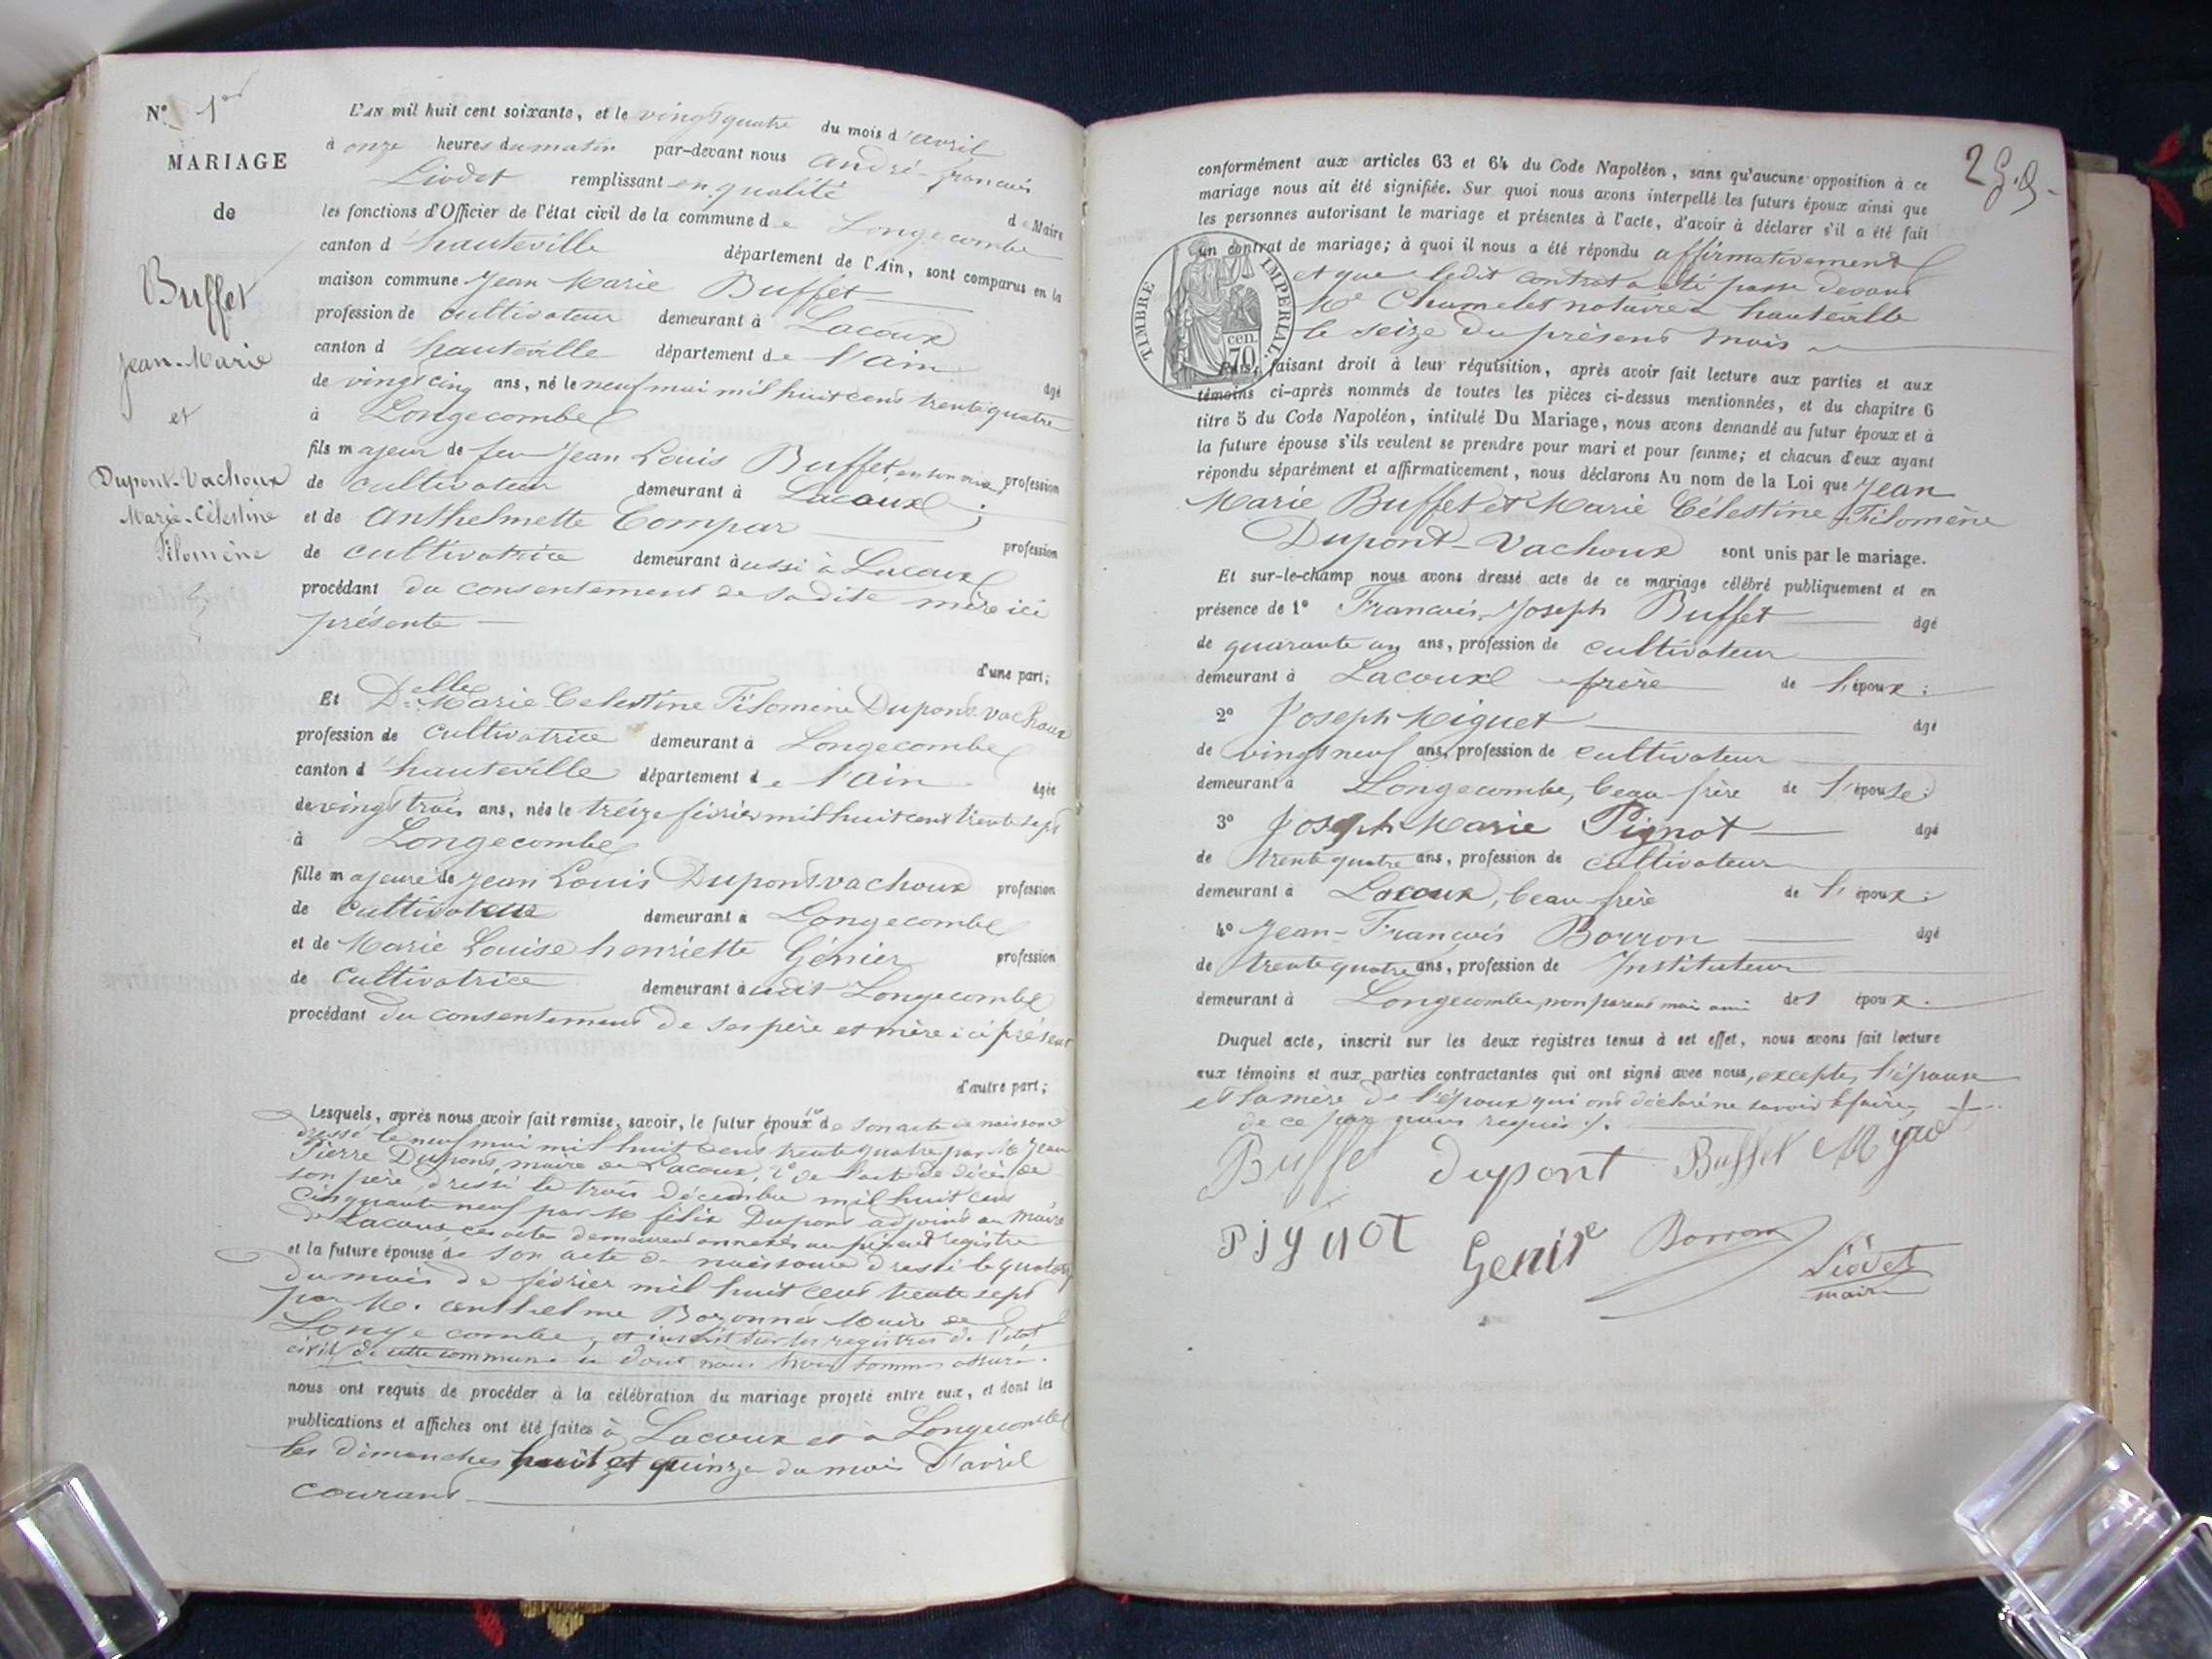 N° 1er
MARIAGE
de
Buffet
Jean-Marie
et
Dupont-Vachoux
Marie-Célestine
Filomène
L'AN mil huit cent soixante, et le vingt quatre du mois d'avril
à onze heures du matin par-devant nous André-françois
Liodet remplissant en qualité d e Maire
les fonctions d'Officier de l'état civil de la commune de Longecombe
canton d'hauteville département de l'Ain, sont comparus en la
maison commune Jean Marie Buffet
profession de cultivateur demeurant à Lacoux
canton d'hauteville département de l'ain âgé
de vingt cinq ans, né le neuf mai mil huit cent trente quatre
à Longecombe
fils majeur de feu Jean Louis Buffet, en son vivant profession
de cultivateur demeurant à Lacoux ;
et de Anthelmette Compar profession
de cultivatrice demeurant aussi à Lacoux
procédant du consentement de sadite mère ici
présente
d'une part;
Et Delle Marie Celestine Filomène Dupont-vachoux
profession de cultivatrice demeurant à Longecombe
canton d'hauteville département de l'ain âgée
de vingt trois ans, née le treize février mil huit cent trente sept
à Longecombe
fille majeure de Jean Louis Dupont vachoux profession
de cultivateur demeurant à Longecombe
et de Marie Louise henriette Génier profession
de cultivatrice demeurant audit Longecombe
procédant du consentement de ses père et mère ici présent
d'autre part;
Lesquels, après nous avoir fait remise, savoir, le futur époux 1° de son acte de naissance
dressé le neuf mai mil huit cent trente quatre par M Jean
Pierre Dupont, maire de Lacoux, 2° de l'acte de décès de
son père, dressé le trois décembre mil huit cent
cinquante neuf par M félix Dupont adjoint au maire
de Lacoux, ces actes demeurent annexés au présent registre
et la future épouse de son acte de naissance dressé le quatorze
du mois de février mil huit cent trente sept
par M. anthelme Bozonnet Maire de
Longecombe, et inscrit sur les registres de l'état
civil de cette commune et dont nous nous sommes assuré.
nous ont requis de procéder à la célébration du mariage projeté entre eux, et dont les
publications et affiches ont été faites à Lacoux et à Longecombe
les dimanches huit et quinze du mois d'avril
courant
2
conformément aux articles 63 et 64 du Code Napoléon, sans qu'aucune opposition à ce
mariage nous ait été signifiée. Sur quoi nous avons interpellé les futurs époux ainsi que
les personnes autorisant le mariage et présentes à l'acte, d'avoir à déclarer s'il a été fait
un contrat de mariage; à quoi il nous a été répondu affirmativement
et que ledit contrat a été passé devant
Me Chamelet notaire à hauteville
le seize du présent mois
TIMBRE IMPÉRIAL
cen.
70
Puis, faisant droit à leur réquisition, après avoir fait lecture aux parties et aux
témoins ci-après nommés de toutes les pièces ci-dessus mentionnées, et du chapitre 6
titre 5 du Code Napoléon, intitulé Du Mariage, nous avons demandé au futur époux et à
la future épouse s'ils veulent se prendre pour mari et pour femme; et chacun d'eux ayant
répondu séparément et affirmativement, nous déclarons Au nom de la Loi que Jean
Marie Buffet et Marie Célestine Filomène
Dupont-Vachoux sont unis par le mariage.
Et sur-le-champ nous avons dressé acte de ce mariage célébré publiquement et en
présence de 1° François-Joseph Buffet âgé
de quarante un ans, profession de cultivateur
demeurant à Lacoux frère de l'époux ;
2° Joseph Miguet âgé
de vingt neuf ans, profession de cultivateur
demeurant à Longecombe, beau-frère de l'épouse ;
3° Joseph Marie Pignot âgé
de trente quatre ans, profession de cultivateur
demeurant à Lacoux, beau-frère de l'époux ;
4° Jean-François Borron âgé
de trente quatre ans, profession de Instituteur
demeurant à Longecombe, non parent mais ami des époux.
Duquel acte, inscrit sur les deux registres tenus à cet effet, nous avons fait lecture
aux témoins et aux parties contractantes qui ont signé avec nous, excepté, l'épouse
et la mère de l'époux qui ont déclaré ne savoir le faire,
de ce par nous requis /.
Buffet dupont Buffet
Pignot Genire Borron Liodet
maire